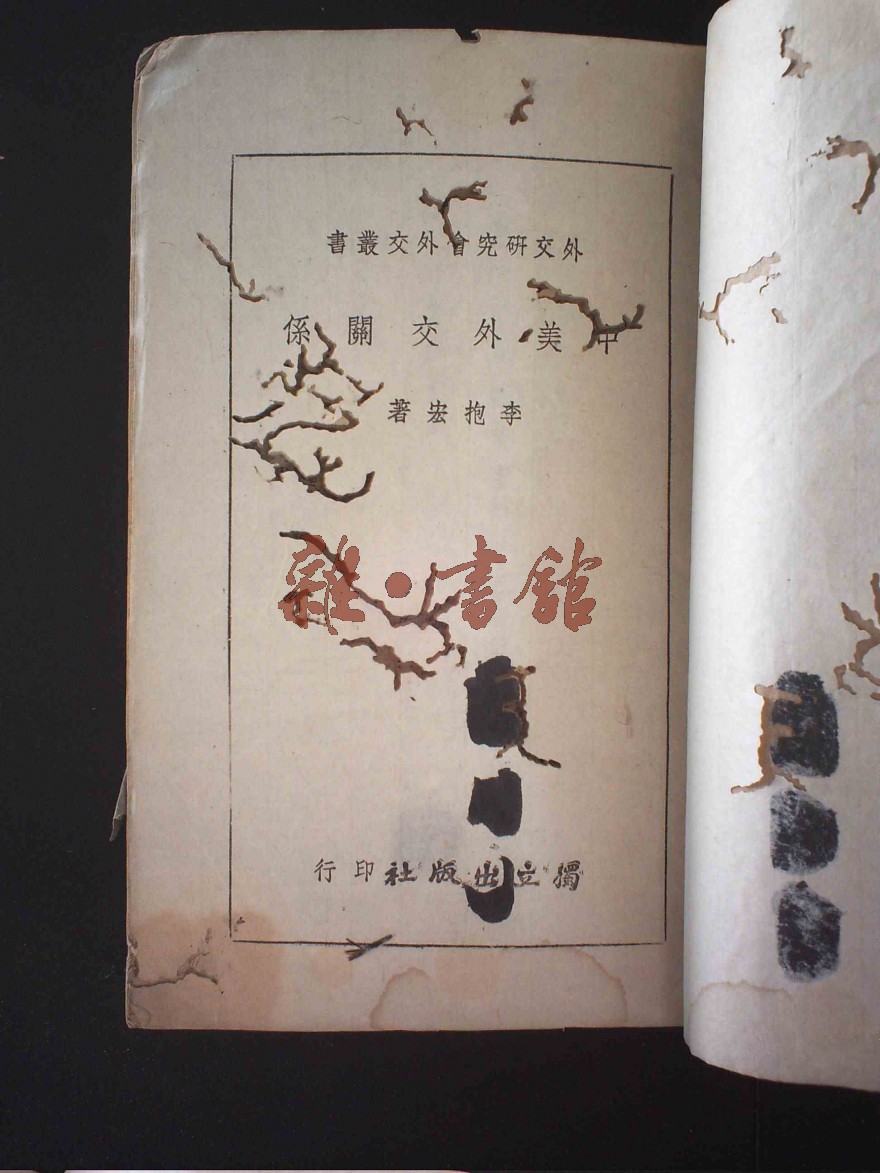 外交研究會外交叢書
中美外交關係
李抱宏著
雜·書館
獨立出版社印行